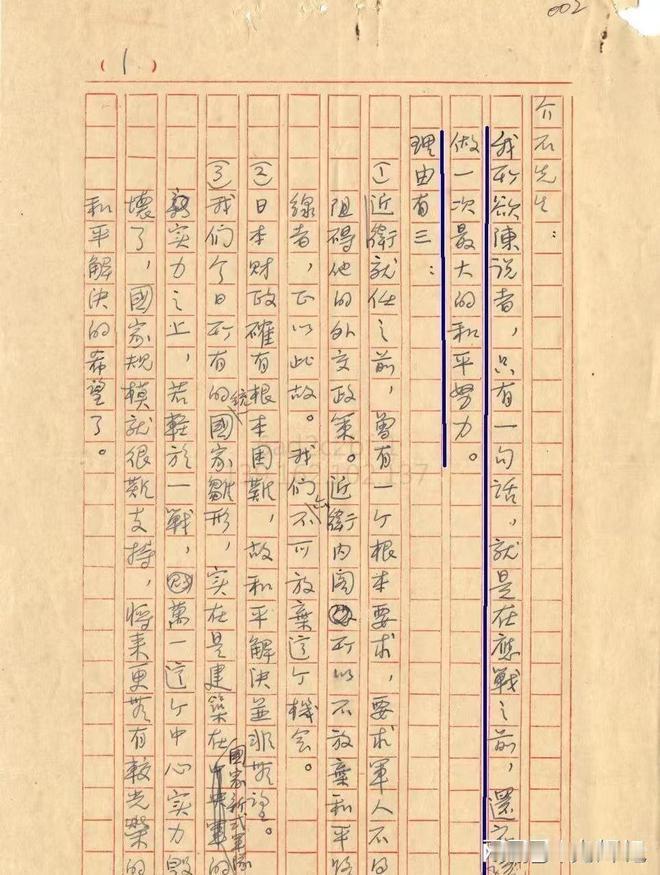 002
(1)
介石先生：
我所欲陳说者，只有一句话，就是在應戰之前，還
做一次最大的和平努力。
理由有三：
①近衛就任之前，曾有一个根本要求，要求軍人不
阻碍他的外交政策。近衛内阁所以不放棄和平
線者，正以此故。我们不可放棄這个機会。
②日本财政確有根本困難，故和平解決並非無望。
③我们今日所有的統國家雛形，实在是建築在國家新式軍隊
实力之上，若輕於一戰，萬一這个中心实力毁
壞了，國家規模就很難支持，將来更無有較光榮的
和平解決的希望了。